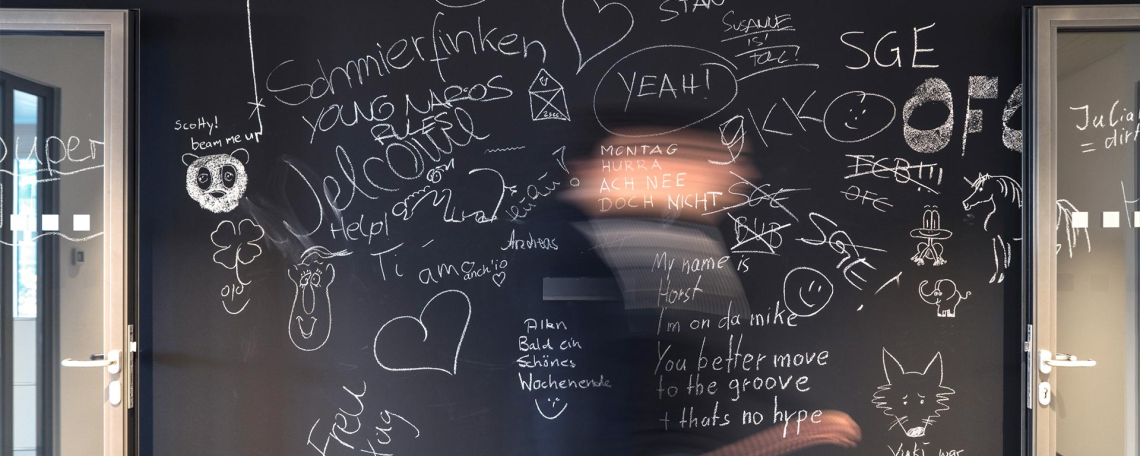 STAN
SUSANNE
IS!
TOLL!
SGE
Schmierfinken
YEAH!
YOUNG NAROS
RULES
Welcome
Scotty!
beam me up
OFC
Julia
super
MONTAG
HURRA
ACH NEE
DOCH NICHT
SGE
OFC
BVB
SGE
Help!
Ti amo
anch'io
Andreas
My name is
Horst
I'm on da mike
You better move
to the groove
+ thats no hype
Allen
Bald ein
Schönes
Wochenende
Frei
tag
Yuki war